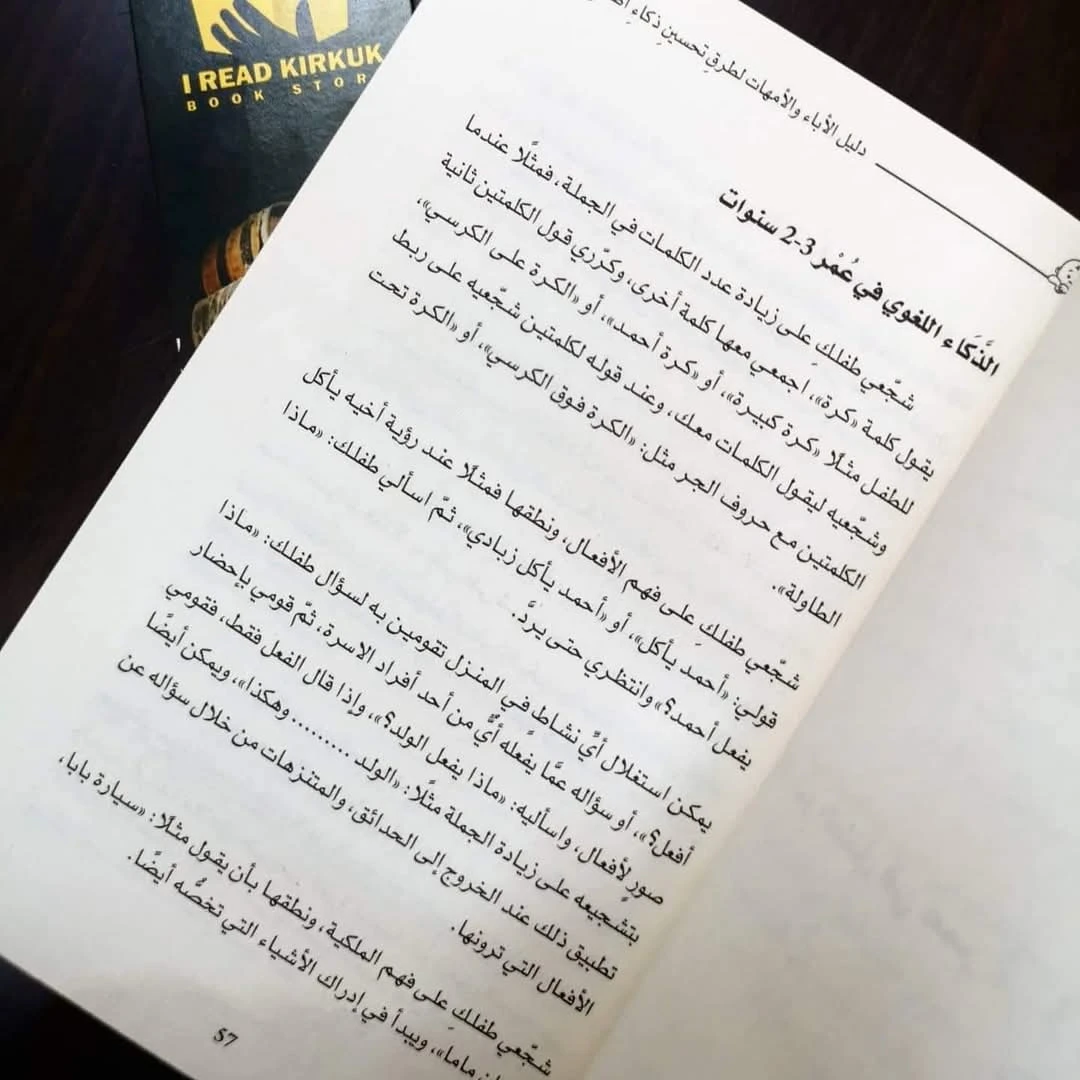 I READ KIRKUK
BOOK STOR
دليل الأباء والأمهات لطرقِ تحسينِ ذكاءِ
الذَّكَاء اللغوي في عُمْر 3-2 سنوات
شجّعي طفلكِ على زيادة عدد الكلمات في الجملة، فمثلًا عندما
يقول كلمة «كرة»، اجمعي معها كلمة أخرى، وكرّري قول الكلمتين ثانية
للطفل مثلًا «كرة كبيرة»، أو «كرة أحمد»، أو «الكرة على الكرسي»،
وشجّعيه ليقول الكلمات معك، وعند قوله لكلمتين شجّعيه على ربط
الكلمتين مع حروف الجر مثل: «الكرة فوق الكرسي»، أو «الكرة تحت
الطاولة».
شجّعي طفلكِ على فهم الأفعال، ونطقها فمثلًا عند رؤية أخيه يأكل
قولي: «أحمد يأكل»، أو «أحمد يأكل زبادي»، ثمّ اسألي طفلك: «ماذا
يفعل أحمد؟» وانتظري حتى يردَّ.
يمكن استغلال أيِّ نشاط في المنزل تقومين به لسؤال طفلك: «ماذا
أفعل؟»، أو سؤاله عمَّا يفعَله أيٌّ من أحد أفراد الاسرة، ثمّ قومي بإحضار
صورٍ لأفعال، واسأليه: «ماذا يفعل الولد؟»، وإذا قال الفعل فقط، فقومي
بتشجيعه على زيادة الجملة مثلًا: «الولد ......... وهكذا»، ويمكن أيضًا
تطبيق ذلك عند الخروج إلى الحدائق، والمتنزهات من خلال سؤاله عن
الأفعال التي ترونها.
شجّعي طفلكِ على فهم الملكية، ونطقها بأن يقول مثلًا: «سيارة بابا،
ماما»، ويبدأ في إدراك الأشياء التي تخصُّه أيضًا.
57